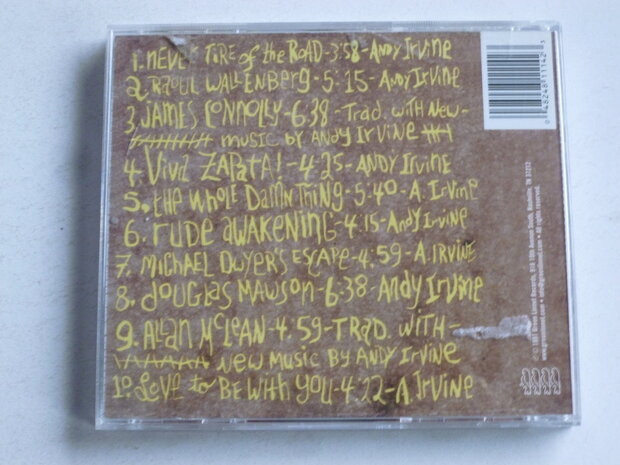 1. NEVER TIRE of the ROAD-3:58-ANDY IRVINE
2. RAOUL WALLENBERG-5:15-ANDY IRVINE
3. JAMES CONNOLLY-6:38-TRAD. WITH NEW-
MUSIC BY ANDY IRVINE
4. VIVA ZAPATA!-4:25-ANDY IRVINE
5. the WHOLE DAMN THING-5:40-A. IRVINE
6. RUDE AWAKENING-4:15-ANDY IRVINE
7. MICHAEL DWYER'S ESCAPE-4:59-A. IRVINE
8. DOUGLAS MAWSON-6:38-ANDY IRVINE
9. ALLAN McLEAN-4:59-TRAD. WITH-
NEW MUSIC BY ANDY IRVINE
10. LOVE to BE WITH YOU-4:22-A. IRVINE
0 48248 11142 3
Green Linnet Records, 916 19th Avenue South, Nashville, TN 37212
www.greenlinnet.com • info@greenlinnet.com • All rights reserved.